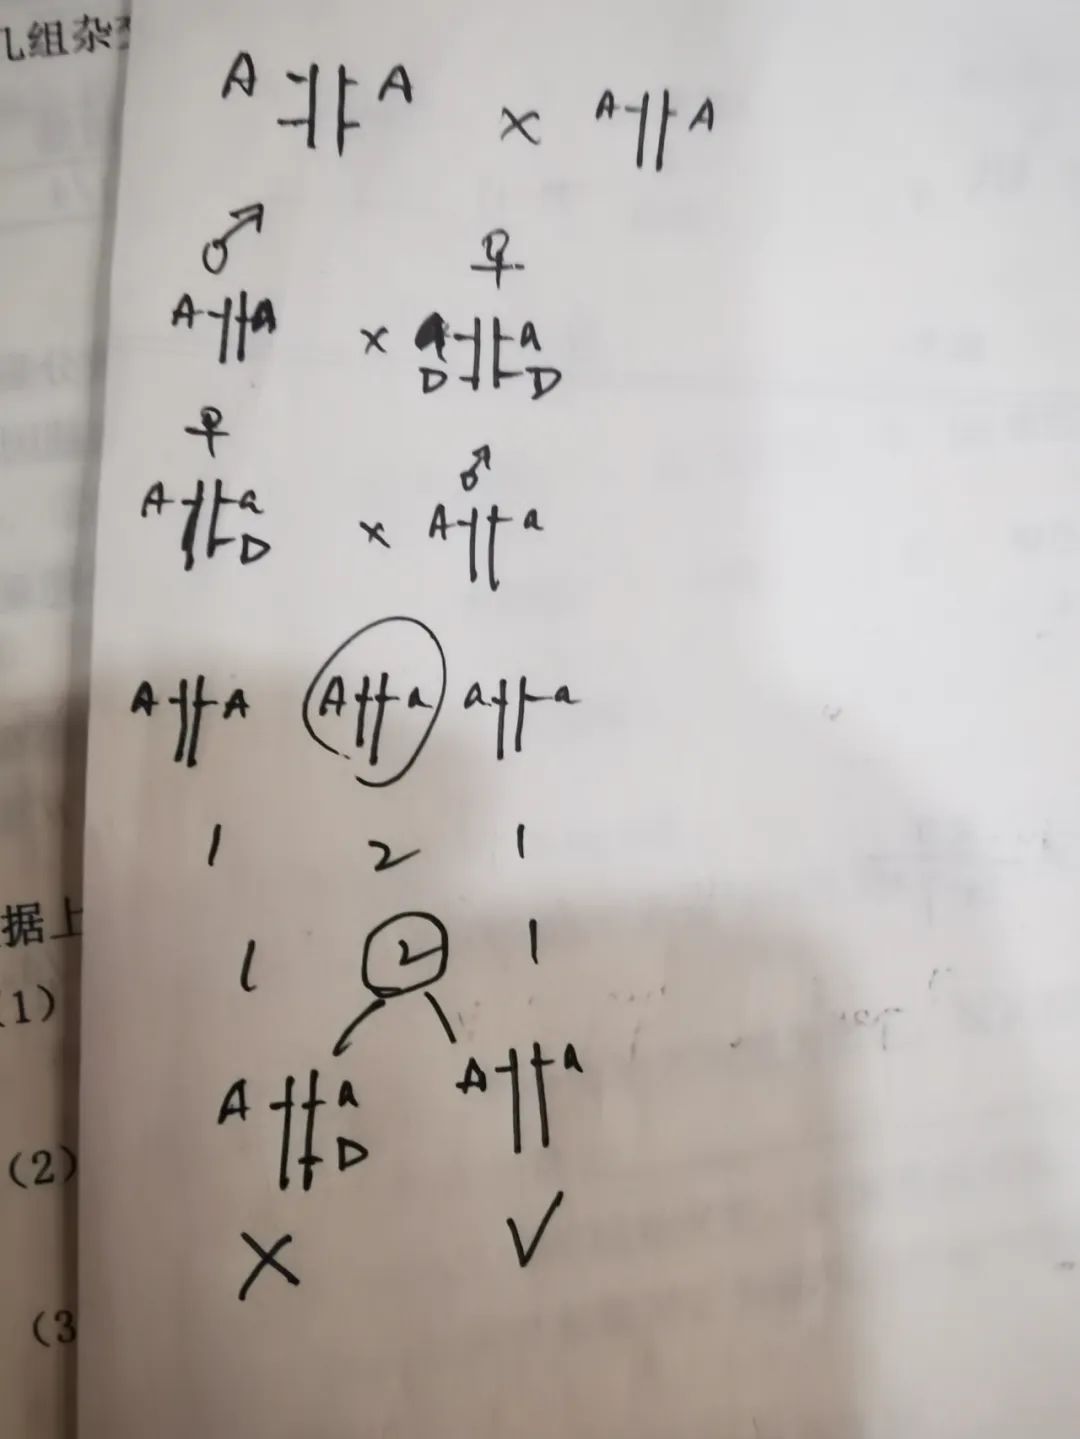 几组杂
A A × A A
♂ ♀
A a × a a
D D
♀ ♂
A a × A a
D
A A A a a a
1 2 1
据上
1 2 1
(1)
A a A a
D
(2)
× √
(3